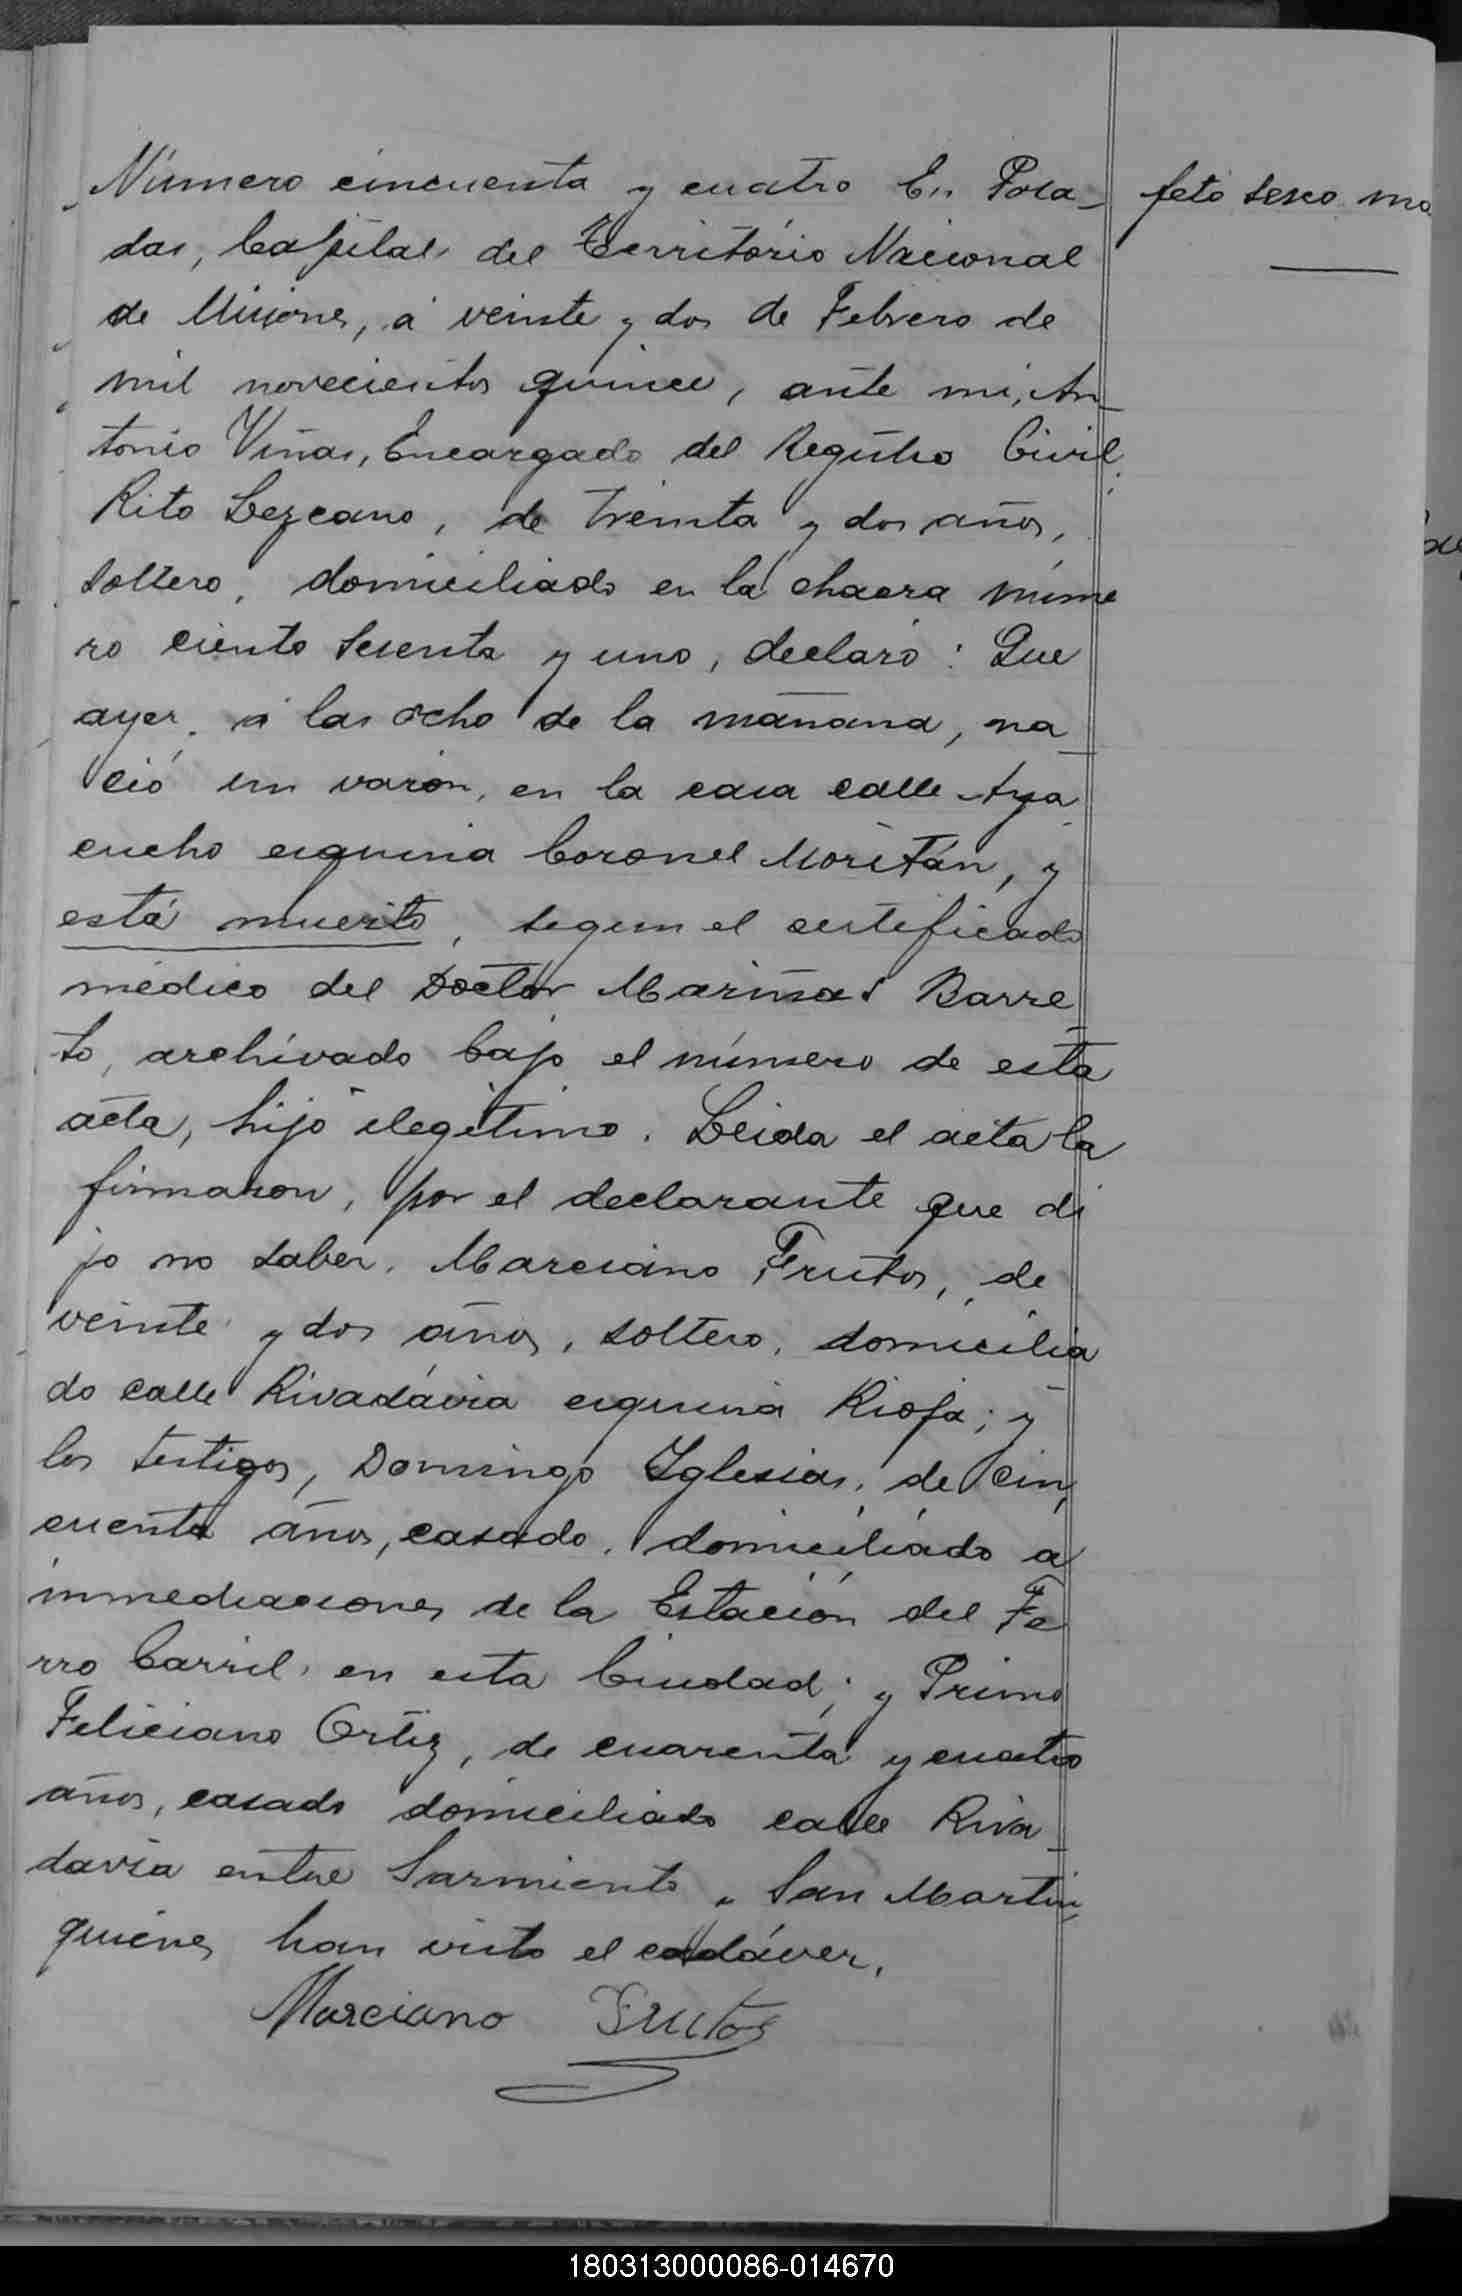 Número cincuenta y cuatro En Posa-
das, Capital del Territorio Nacional
de Misiones, á veinte y dos de Febrero de
mil novecientos quince, ante mi, An-
tonio Viñas, Encargado del Registro Civil,
Rito Lezcano, de treinta y dos años,
soltero, domiciliado en la chacra núme
ro ciento sesenta y uno, declaró: Que
ayer, á las ocho de la mañana, na-
ció un varón, en la casa calle Aya
cucho esquina Coronel Moritán, y
está muerto, segun el certificado
médico del Doctor Mariñas Barre
to, archivado bajo el número de esta
acta, hijo ilegítimo. Leida el acta la
firmaron, por el declarante que di
jo no saber, Marciano Frutos, de
veinte y dos años, soltero, domicilia
do calle Rivadávia esquina Rioja; y
los testigos, Domingo Iglesias, de cin
cuenta años, casado, domiciliado a
inmediaciones de la Estación del Fe
rro Carril, en esta Ciudad; y Primo
Feliciano Ortiz, de cuarenta y cuatro
años, casado domiciliado calle Riva-
davia entre Sarmiento y San Martin,
quienes han visto el cadáver.
Marciano Frutos
feto sexo ma
180313000086-014670